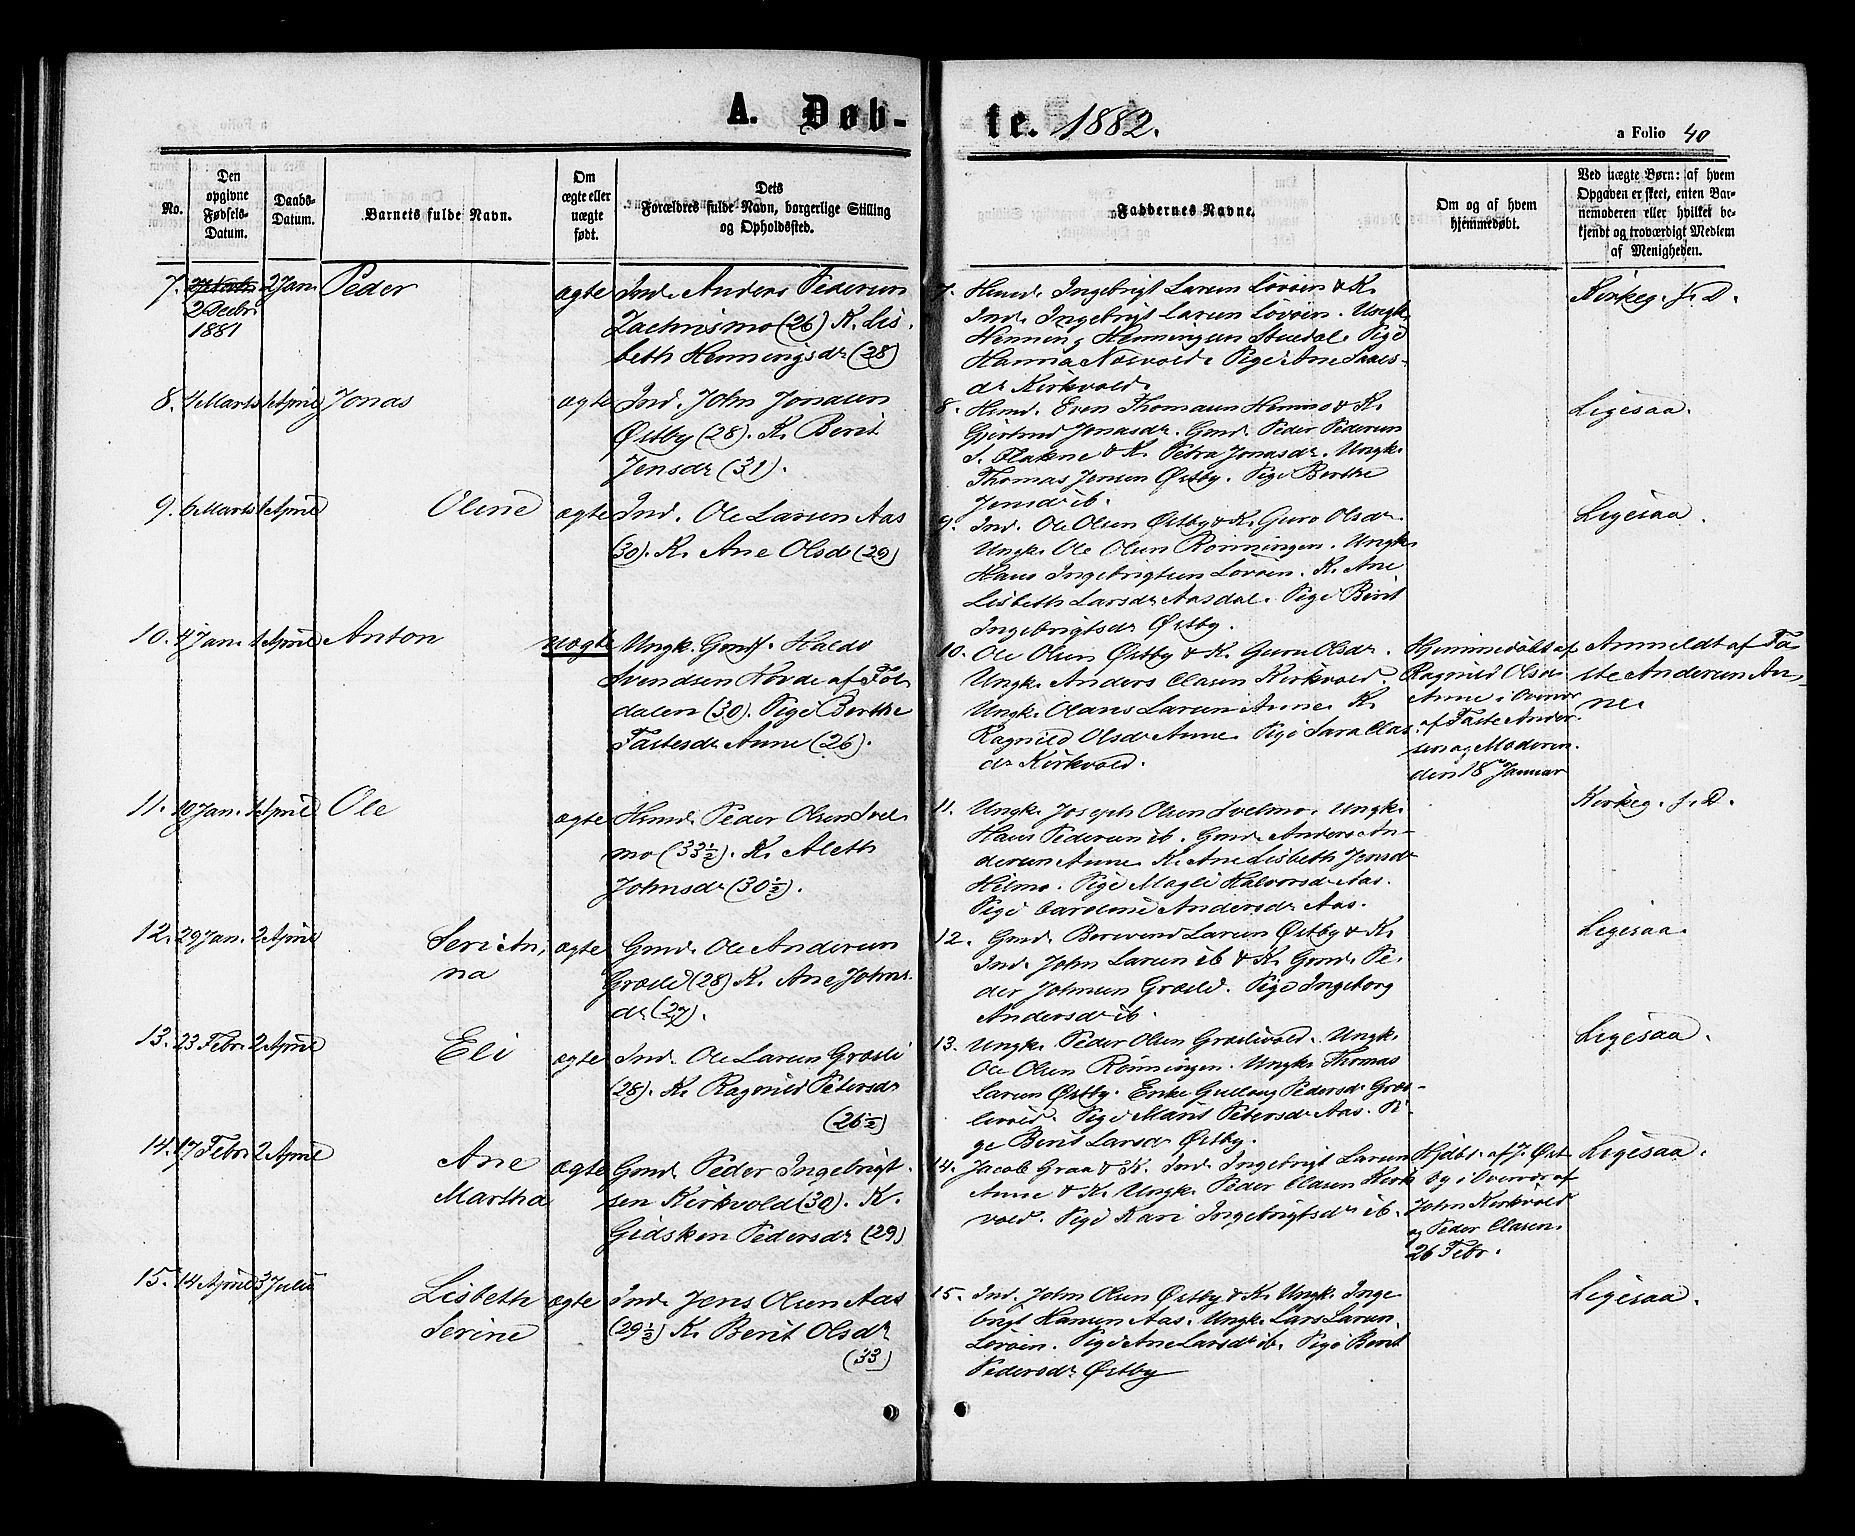 A. Døb-
te. 1882.
a Folio 40
No.
Den
opgivne
Fødsels-
Datum.
Daabs-
Datum.
Barnets fulde Navn.
Om
ægte eller
uægte
født.
Dets
Forældres fulde Navn, borgerlige Stilling
og Opholdssted.
Faddernes Navne.
Om og af hvem
hjemmedøbt.
Ved uægte Børn: af hvem
Opgaven er skeet, enten Bar-
nemoderen eller hvilket be-
kjendt og troværdigt Medlem
af Menigheden.
7. 2 Decbr 1881 2 Jan. Peder
ægte
Ind. Anders Pedersen
Zachrismo (26) K. Lis-
beth Henningsdr (28)
7. Husmd. Ingebrigt Larsen Løvøen & K.
Ind. Ingebrigt Larsen Løvøen. Ungk.
Henning Henningsen Stuedal. Pige
Hanna Næsvold. Pige Ane
dr Kirkvold.
Kirkeg. f. D.
8. 4 Marts 1 April Jonas
ægte
Ind. John Jonasen
Østby (28). K. Berit
Jensdr (31).
8. Husmd. Even Thomasen Hemmo & K.
Gjertrud Jonasdr. Gmd. Peder Pedersen
S. Flakne & K. Petra Jonasdr. Ungk.
Thomas Jensen Østby. Pige Berthe
Jensdr ib.
Ligesaa.
9. 6 Marts 1 April Oline
ægte
Ind. Ole Larsen Aas
(30). K. Ane Olsdr (29)
9. Ind. Ole Olsen Østby & K. Guro Olsdr.
Ungk. Ole Olsen Rønningen. Ungk.
Hans Ingebrigtsen Løvøen. K. Ane
Lisbeth Larsdr Aasdal. Pige Berit
Ingebrigtsdr Østby.
Ligesaa.
10. 4 Jan. 1 April Anton
uægte
Ungk. Gmdf. Haldo
Svendsen Hovde af Fol-
dalen (30). Pige Berthe
Fastesdr Aune (26).
10. Ole Olsen Østby & K. Guru Olsdr.
Ungk. Anders Olasen Kirkvold.
Ungk. Olaus Larsen Aune. K.
Ragnild Olsdr Aune. Pige Sara Olas-
dr Kirkvold.
Hjemmedøbt af
Ragnild Olsdr
Aune i Overvær
af Faste Ander-
sen og Moderen
den 18de Januar
Anmeldt af Fa-
ste Andersen Au-
ne.
11. 10 Jan. 1 April Ole
ægte
Husmd. Peder Olsen Svel-
mo (33½). K. Aleth
Johnsdr (30½).
11. Ungk. Joseph Olsen Svelmo. Ungk.
Hans Pedersen ib. Gmd. Anders An-
dersen Aune. K. Ane Lisbeth Jensdr
Hilmo. Pige Magli Halvorsdr Aas.
Pige Caroline Andersdr Aas.
Kirkeg. f. D.
12. 29 Jan. 2 April Seri An-
na
ægte
Gmd. Ole Andersen
Græsli (28) K. Ane Johns-
dr (27).
12. Gmd. Bersvend Larsen Østby & K.
Ind. John Larsen ib & K. Gmd. Pe-
der Johnsen Græsli. Pige Ingeborg
Andersdr ib.
Ligesaa.
13. 23 Febr. 2 April Eli
ægte
Ind. Ole Larsen Græsli
(28). K. Ragnild Petersdr
(26½)
13. Ungk. Peder Olsen Græslivold. Ungk.
Ole Olsen Rønningen. Ungk. Thomas
Larsen Østby. Enke Gullaug Pedersdr Græs-
livold. Pige Marit Petersdr Aas. Pi-
ge Berit Larsdr Østby.
Ligesaa.
14. 17 Febr. 2 April Ane
Martha
ægte
Gmd. Peder Ingebrigt-
sen Kirkvold (30). K.
Gidsken Pedersdr (29)
14. Jacob Graa & K. Ind. Ingebrigt Larsen
Aune & K. Ungk. Peder Olasen Kirk-
vold. Pige Kari Ingebrigtsdr ib.
Hjdbt. af J. Øst-
by i Overvær af
John Kirkvold
og Peder Olasen.
26 Febr.
Ligesaa.
15. 14 April 3 Juli Lisbeth
Serine
ægte
Ind. Jens Olsen Aas
(29½) K. Berit Olsdr
(33)
15. Ind. John Olsen Østby & K. Ungk. Inge-
brigt Hansen Aas. Ungk. Lars Larsen
Løvøen. Pige Ane Larsdr ib. Pige Berit
Pedersdr Østby
Ligesaa.